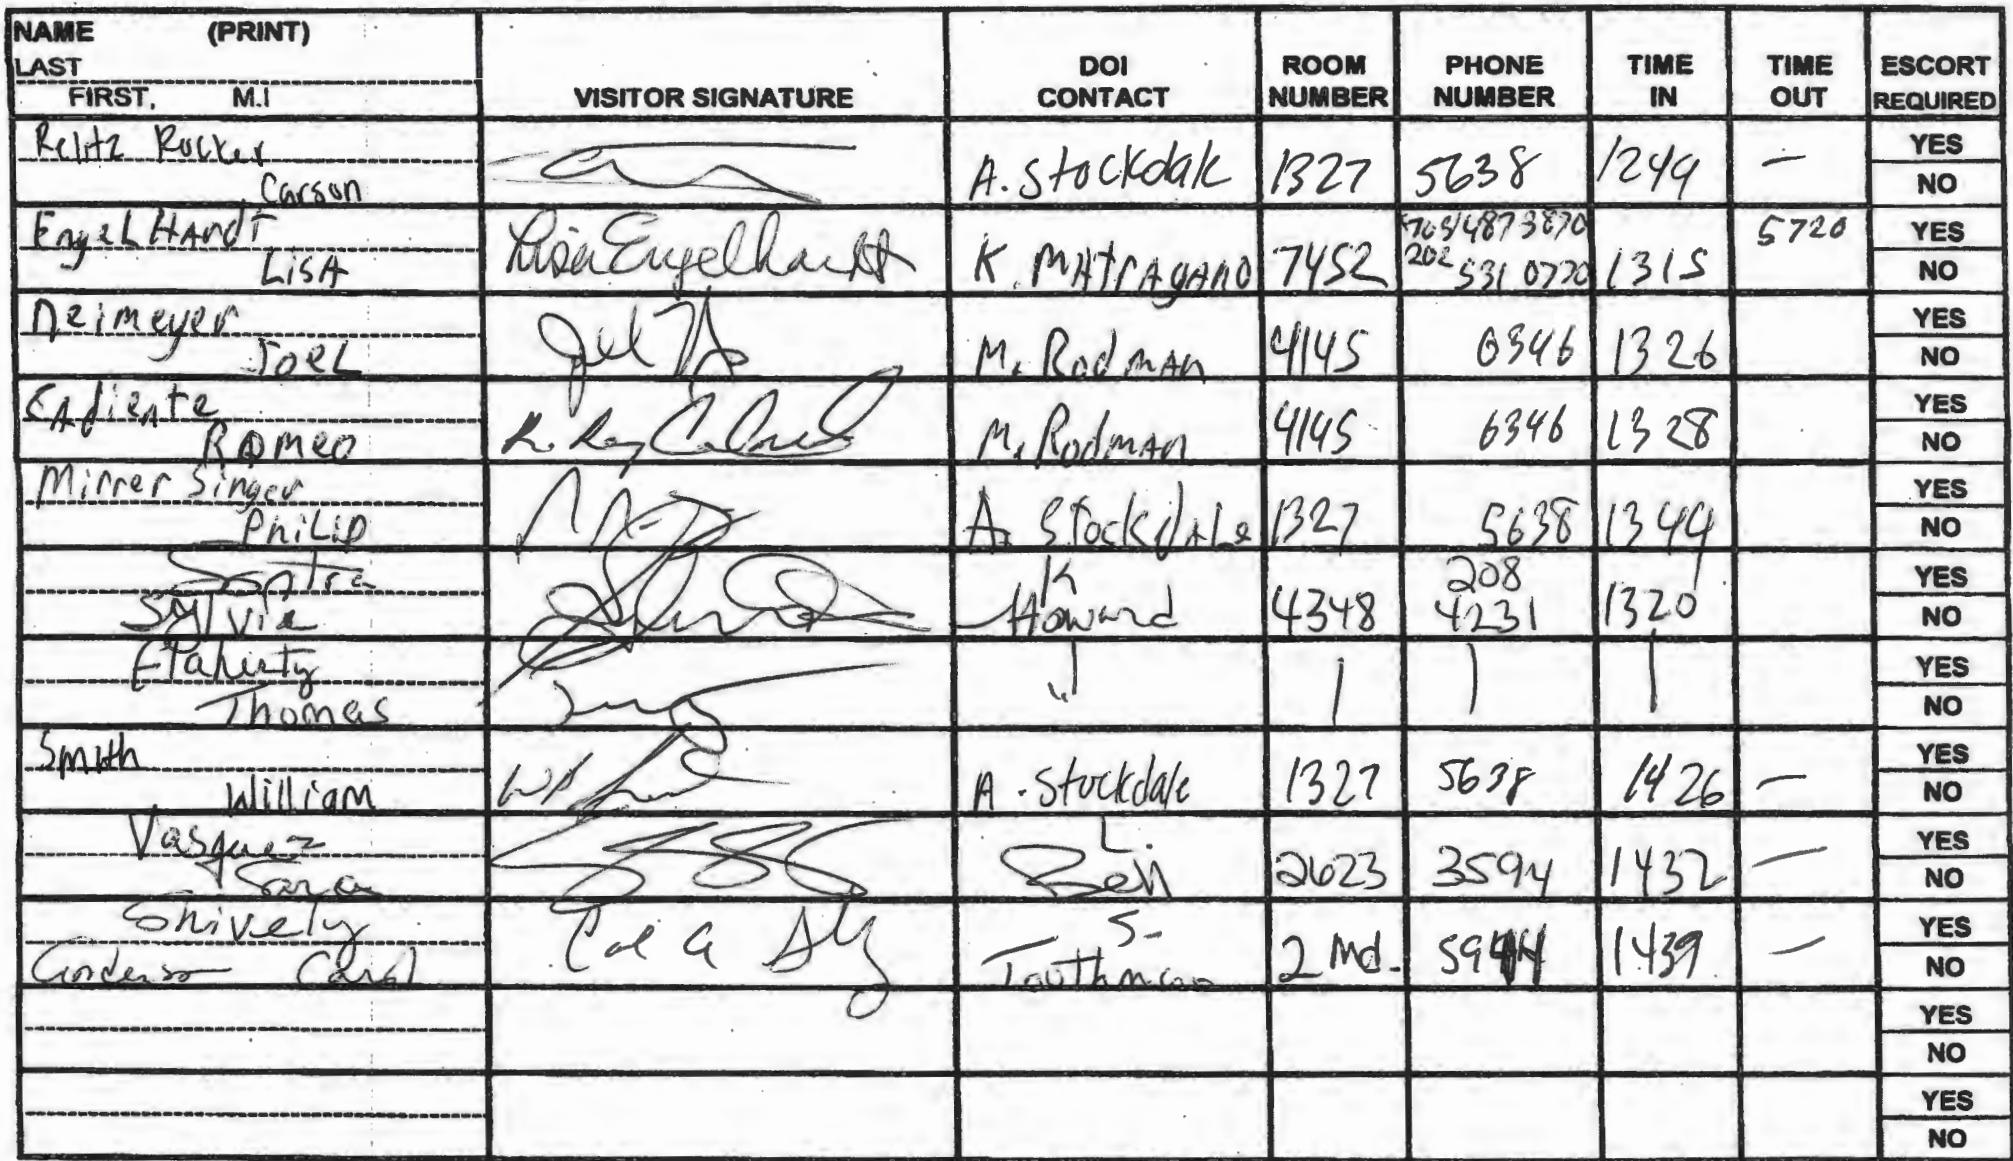 NAME (PRINT)
LAST
FIRST, M.I
VISITOR SIGNATURE
DOI CONTACT
ROOM NUMBER
PHONE NUMBER
TIME IN
TIME OUT
ESCORT REQUIRED
Relitz Rocker
Carson
A. Stockdale 1327 5638 1249 — YES
NO
EngelHardt
LisA
Lisa Engelhardt
K. MAtrAgAno 7452 703/4873870 1315 5720 YES
202 531 0770 NO
Neimeyer
JoeL
M. RodmAn 4145 6346 1326 YES
NO
CAdiente
Romeo
M. RodmAn 4145 6346 1328 YES
NO
Mirrer Singer
PhiLip
A. StockdALe 1327 5638 1344 YES
NO
Sylvia
K Howard 4348 208 4231 1320 YES
NO
Flaherty
Thomas
YES
NO
Smith
William
A. Stockdale 1327 5638 1426 — YES
NO
Vasquez
Sara
L. 2623 3594 1432 — YES
NO
Shively
Carol
S. 2 Md. 5944 1439 — YES
NO
YES
NO
YES
NO